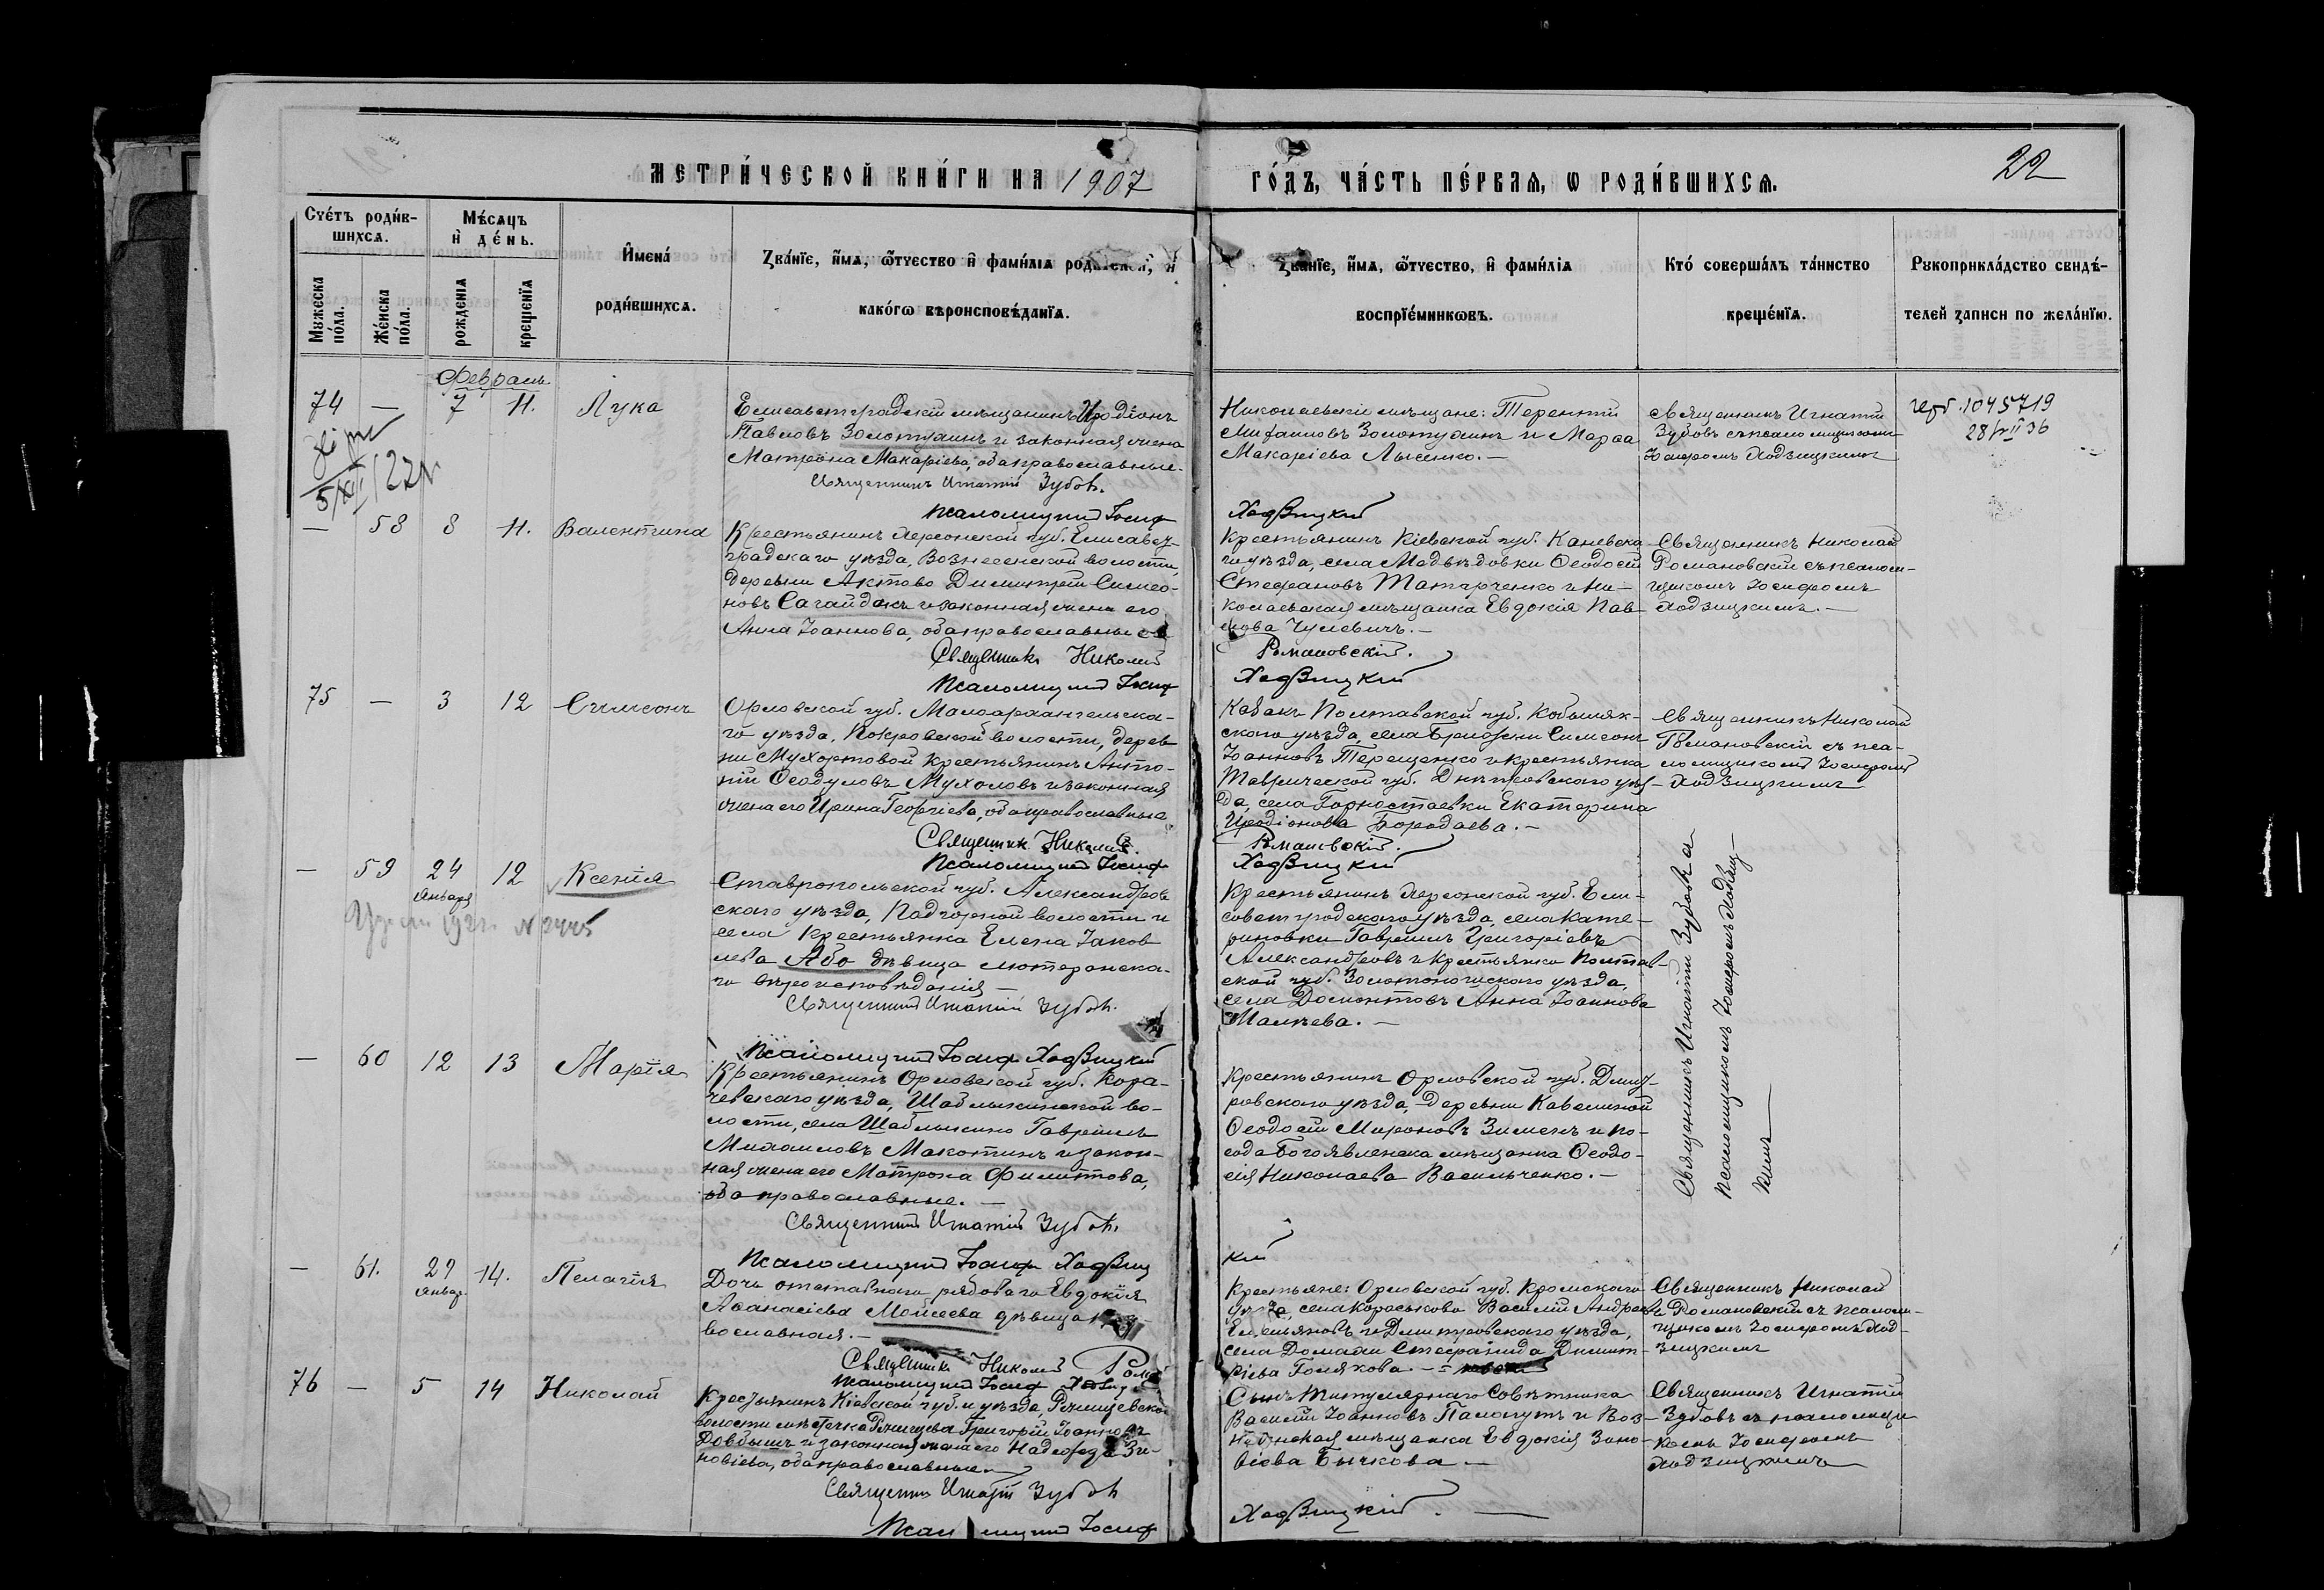 МЕТРИ́ЧЕСКОЙ КНИ́ГИ НА 1907
ГО́ДЪ, ЧА́СТЬ ПЕ́РВАѦ, Ѡ РОДИ́ВШИХСѦ.
22
Сче́тъ роди́в-
шихсѧ.
Мѣ́сѧцъ
и҆ де́нь.
И҆мена́
роди́вшихсѧ.
Мꙋжеска
по́ла.
Же́нска
по́ла.
рожденїѧ
крещенїѧ
Зва́нїе, и҆́мѧ, ѻ҆́тчество и҆ фами́лїѧ роди́телей, и҆
како́гѡ вѣроисповѣ́данїѧ.
Зва́нїе, и҆́мѧ, ѻ҆́тчество, и҆ фами́лїѧ
воспрїе́мникѡвъ.
Кто́ соверша́лъ та́инство
креще́нїѧ.
Рꙋкоприкла́дство свидѣ́-
телей записи по жела́нїю.
Февраль
74 — 7 11. Лука
Елисаветградскій мѣщанинъ Иродіонъ
Павловъ Золотухинъ и законная жена
Матрона Макаріева, оба православные.
Священникъ Игнатій Зубовъ.
Псаломщикъ Іосиф
Николаевскіе мѣщане: Терентій
Михаиловъ Золотухинъ и Марѳа
Макаріева Лысенко. —
Ходзицкій
Священникъ Игнатій
Зубовъ съ псаломщикомъ
Іосифомъ Ходзицкимъ
1045719
28/VII 36
— 58 8 11. Валентина
Крестьянинъ Херсонской губ. Елисавет-
градскаго уѣзда, Вознесенской волости,
деревни Актово Димитрій Симео-
новъ Сагайдакъ и законная жена его
Анна Іоаннова, оба православные
Священникъ Николай
Псаломщикъ Іосиф
Крестьянинъ Кіевской губ. Каневска-
го уѣзда, села Медвѣдовки Ѳеодосій
Стефановъ Татарченко и Ни-
колаевская мѣщанка Евдокія Пав-
лова Чулевичъ. —
Романовскій.
Ходзицкій
Священникъ Николай
Романовскій съ псалом-
щикомъ Іосифомъ
Ходзицкимъ. —
75 — 3 12 Симеонъ
Орловской губ. Малоархангельска-
го уѣзда, Покровской волости, дерев-
ни Мухортовой крестьянинъ Анто-
ній Ѳеодуловъ Мухоловъ и законная
жена его Ирина Георгіева, оба православные
Священник Николай.
Псаломщикъ Іосиф
Козакъ Полтавской губ. Кобыляк-
скаго уѣзда, села Симеонъ
Іоанновъ Терещенко и крестьянка
Таврической губ. Днѣпровскаго уѣз-
да, села Горностаевки Екатерина
Иродіонова Бородаева. —
Романовскій.
Ходзицкій
Священникъ Николай
Романовскій съ пса-
ломщикомъ Іосифомъ
Ходзицкимъ
— 59 24 12 Ксенія
Января
1921 N 2445
Ставропольской губ. Александров
скаго уѣзда, Подгорной волости и
села Крестьянка Елена Іаков
лева Або дѣвица лютеранска-
го вѣроисповѣданія —
Священникъ Игнатій Зубовъ.
Псаломщикъ Іосиф Ходзицкій
Крестьянинъ Херсонской губ. Ели-
саветградскаго уѣзда, села Кате-
риновки Гавріилъ Григоріевъ
Александровъ и крестьянка Полтав-
ской губ. Золотоношскаго уѣзда,
села Домонтовъ Анна Іоаннова
Малѣева. —
Священникъ Игнатій Зубовъ съ
псаломщикомъ Іосифомъ Ходзиц-
кимъ
— 60 12 13 Марія
Крестьянинъ Орловской губ. Кара-
чевскаго уѣзда, Шаблыкинской во-
лости, села Шаблыкино Гавріилъ
Михаиловъ Макотинъ и закон-
ная жена его Матрона Филиппова,
оба православные. —
Священникъ Игнатій Зубовъ.
Псаломщикъ Іосиф Ходзиц
Крестьянинъ Орловской губ. Дмит-
ровскаго уѣзда, деревни Кавелиной
Ѳеодосій Мироновъ Зименъ и по-
сада Богоявленска мѣщанка Ѳеодо-
сія Николаева Васильченко. —
кій
— 61. 29 14. Пелагія
Январ.
Дочь отставного рядового Евдокія
Аѳанасіева Моисеева дѣвица
вославная. —
Священникъ Николай Рома
Псаломщикъ Іосиф Ходзиц
Крестьяне: Орловской губ. Кромскаго
уѣзда, села Короськово Василій Андреевъ
Емельяновъ и Дмитровскаго уѣзда,
села Домахи Стефанида Димит-
ріева Голякова. —
Священникъ Николай
Романовскій съ псалом-
щикомъ Іосифомъ Ход-
зицкимъ
76 — 5 14 Николай
Крестьянинъ Кіевской губ. и уѣзда, Ржищевской
волости мѣстечка Ржищева Григорій Іоанновъ
Довбышъ и законная жена его Надежда Зи-
новіева, оба православные. —
Священникъ Игнатій Зубовъ
Псаломщикъ Іосиф
Сынъ Титулярнаго Совѣтника
Василій Іоанновъ Палагутъ и Воз-
несенская мѣщанка Евдокія Зино-
віева Бычкова —
Ходзицкій. —
Священникъ Игнатій
Зубовъ съ псаломщи-
комъ Іосифомъ
Ходзицкимъ